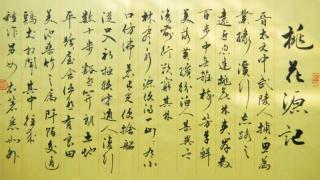 桃花源记
晋太元中武陵人捕鱼为
业缘溪行忘路之
远近忽逢桃花林夹岸数
百步中无杂树芳草鲜
美落英缤纷渔人甚异之
复前行欲穷其林
林尽水源便得一山山有小
口仿佛若有光便舍船
从口入初极狭才通人复行
数十步豁然开朗土地
平旷屋舍俨然有良田
美池桑竹之属阡陌交通
鸡犬相闻其中往来
种作男女衣着悉如外